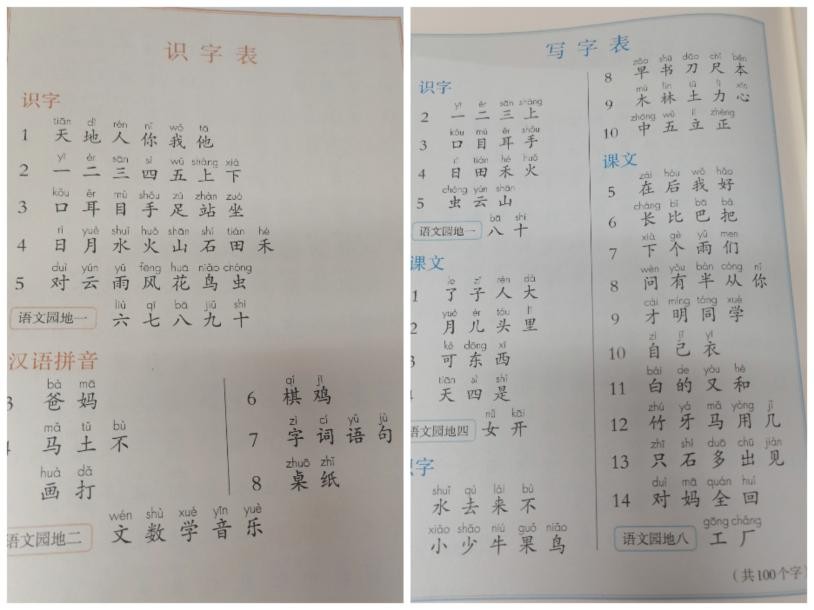 识字表
识字
tiān dì rén nǐ wǒ tā
1 天地人你我他
yī èr sān sì wǔ shàng xià
2 一二三四五上下
kǒu ěr mù shǒu zú zhàn zuò
3 口耳目手足站坐
rì yuè shuǐ huǒ shān shí tián hé
4 日月水火山石田禾
duì yún yǔ fēng huā niǎo chóng
5 对云雨风花鸟虫
liù qī bā jiǔ shí
语文园地一 六七八九十
汉语拼音
bà mā
3 爸妈
mǎ tǔ bù
马土不
huà dǎ
画打
qí jī
6 棋鸡
zì cí yǔ jù
7 字词语句
zhuō zhǐ
8 桌纸
wén shù xué yīn yuè
语文园地二 文数学音乐
写字表
识字
yī èr sān shàng
2 一二三上
kǒu mù ěr shǒu
3 口目耳手
rì tián hé huǒ
4 日田禾火
chóng yún shān
5 虫云山
bā shí
语文园地一 八十
课文
le zǐ rén dà
1 了子人大
yuè ér tóu lǐ
2 月儿头里
kě dōng xī
3 可东西
tiān sì shì
4 天四是
nǚ kāi
语文园地四 女开
识字
shuǐ qù lái bù
水去来不
xiǎo shǎo niú guǒ niǎo
小少牛果鸟
zǎo shū dāo chǐ běn
8 早书刀尺本
mù lín tǔ lì xīn
9 木林土力心
zhōng wǔ lì zhèng
10 中五立正
课文
zài hòu wǒ hǎo
5 在后我好
cháng bǐ bā bǎ
6 长比巴把
xià gè yǔ men
7 下个雨们
wèn yǒu bàn cóng nǐ
8 问有半从你
cái míng tóng xué
9 才明同学
zì jǐ yī
10 自己衣
bái de yòu hé
11 白的又和
zhú yá mǎ yòng jǐ
12 竹牙马用几
zhǐ shí duō chū jiàn
13 只石多出见
duì mā quán huí
14 对妈全回
gōng chǎng
语文园地八 工厂
(共100个字)